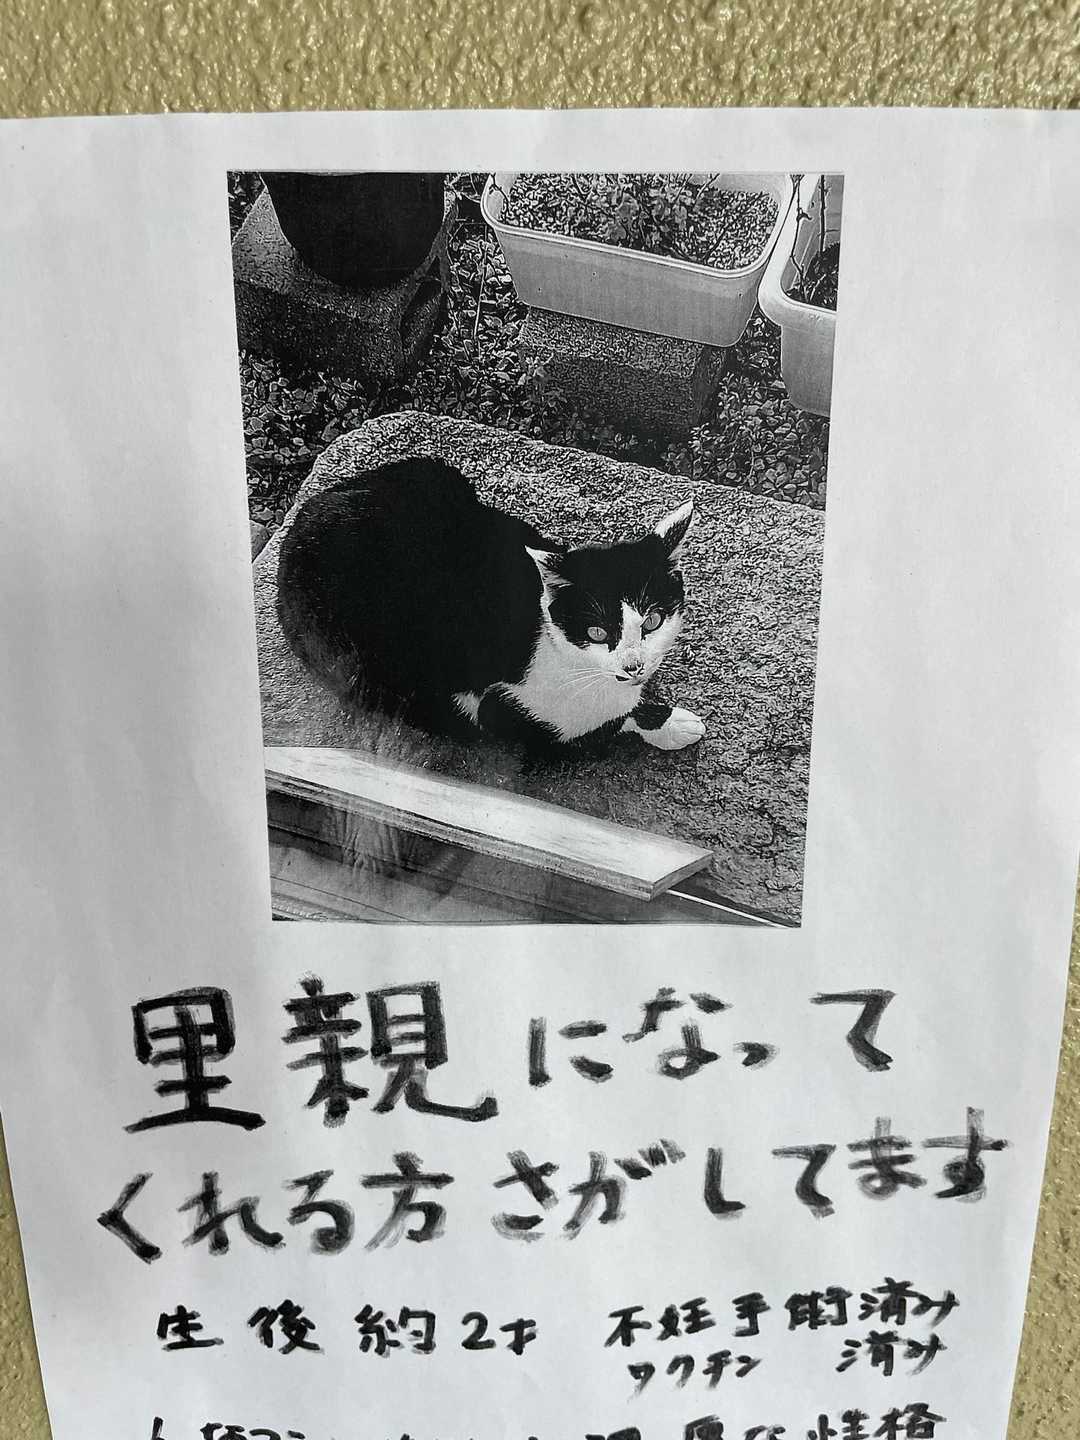 里親になって
くれる方さがしてます
生後約2才 不妊手術済み
ワクチン 済み
性格